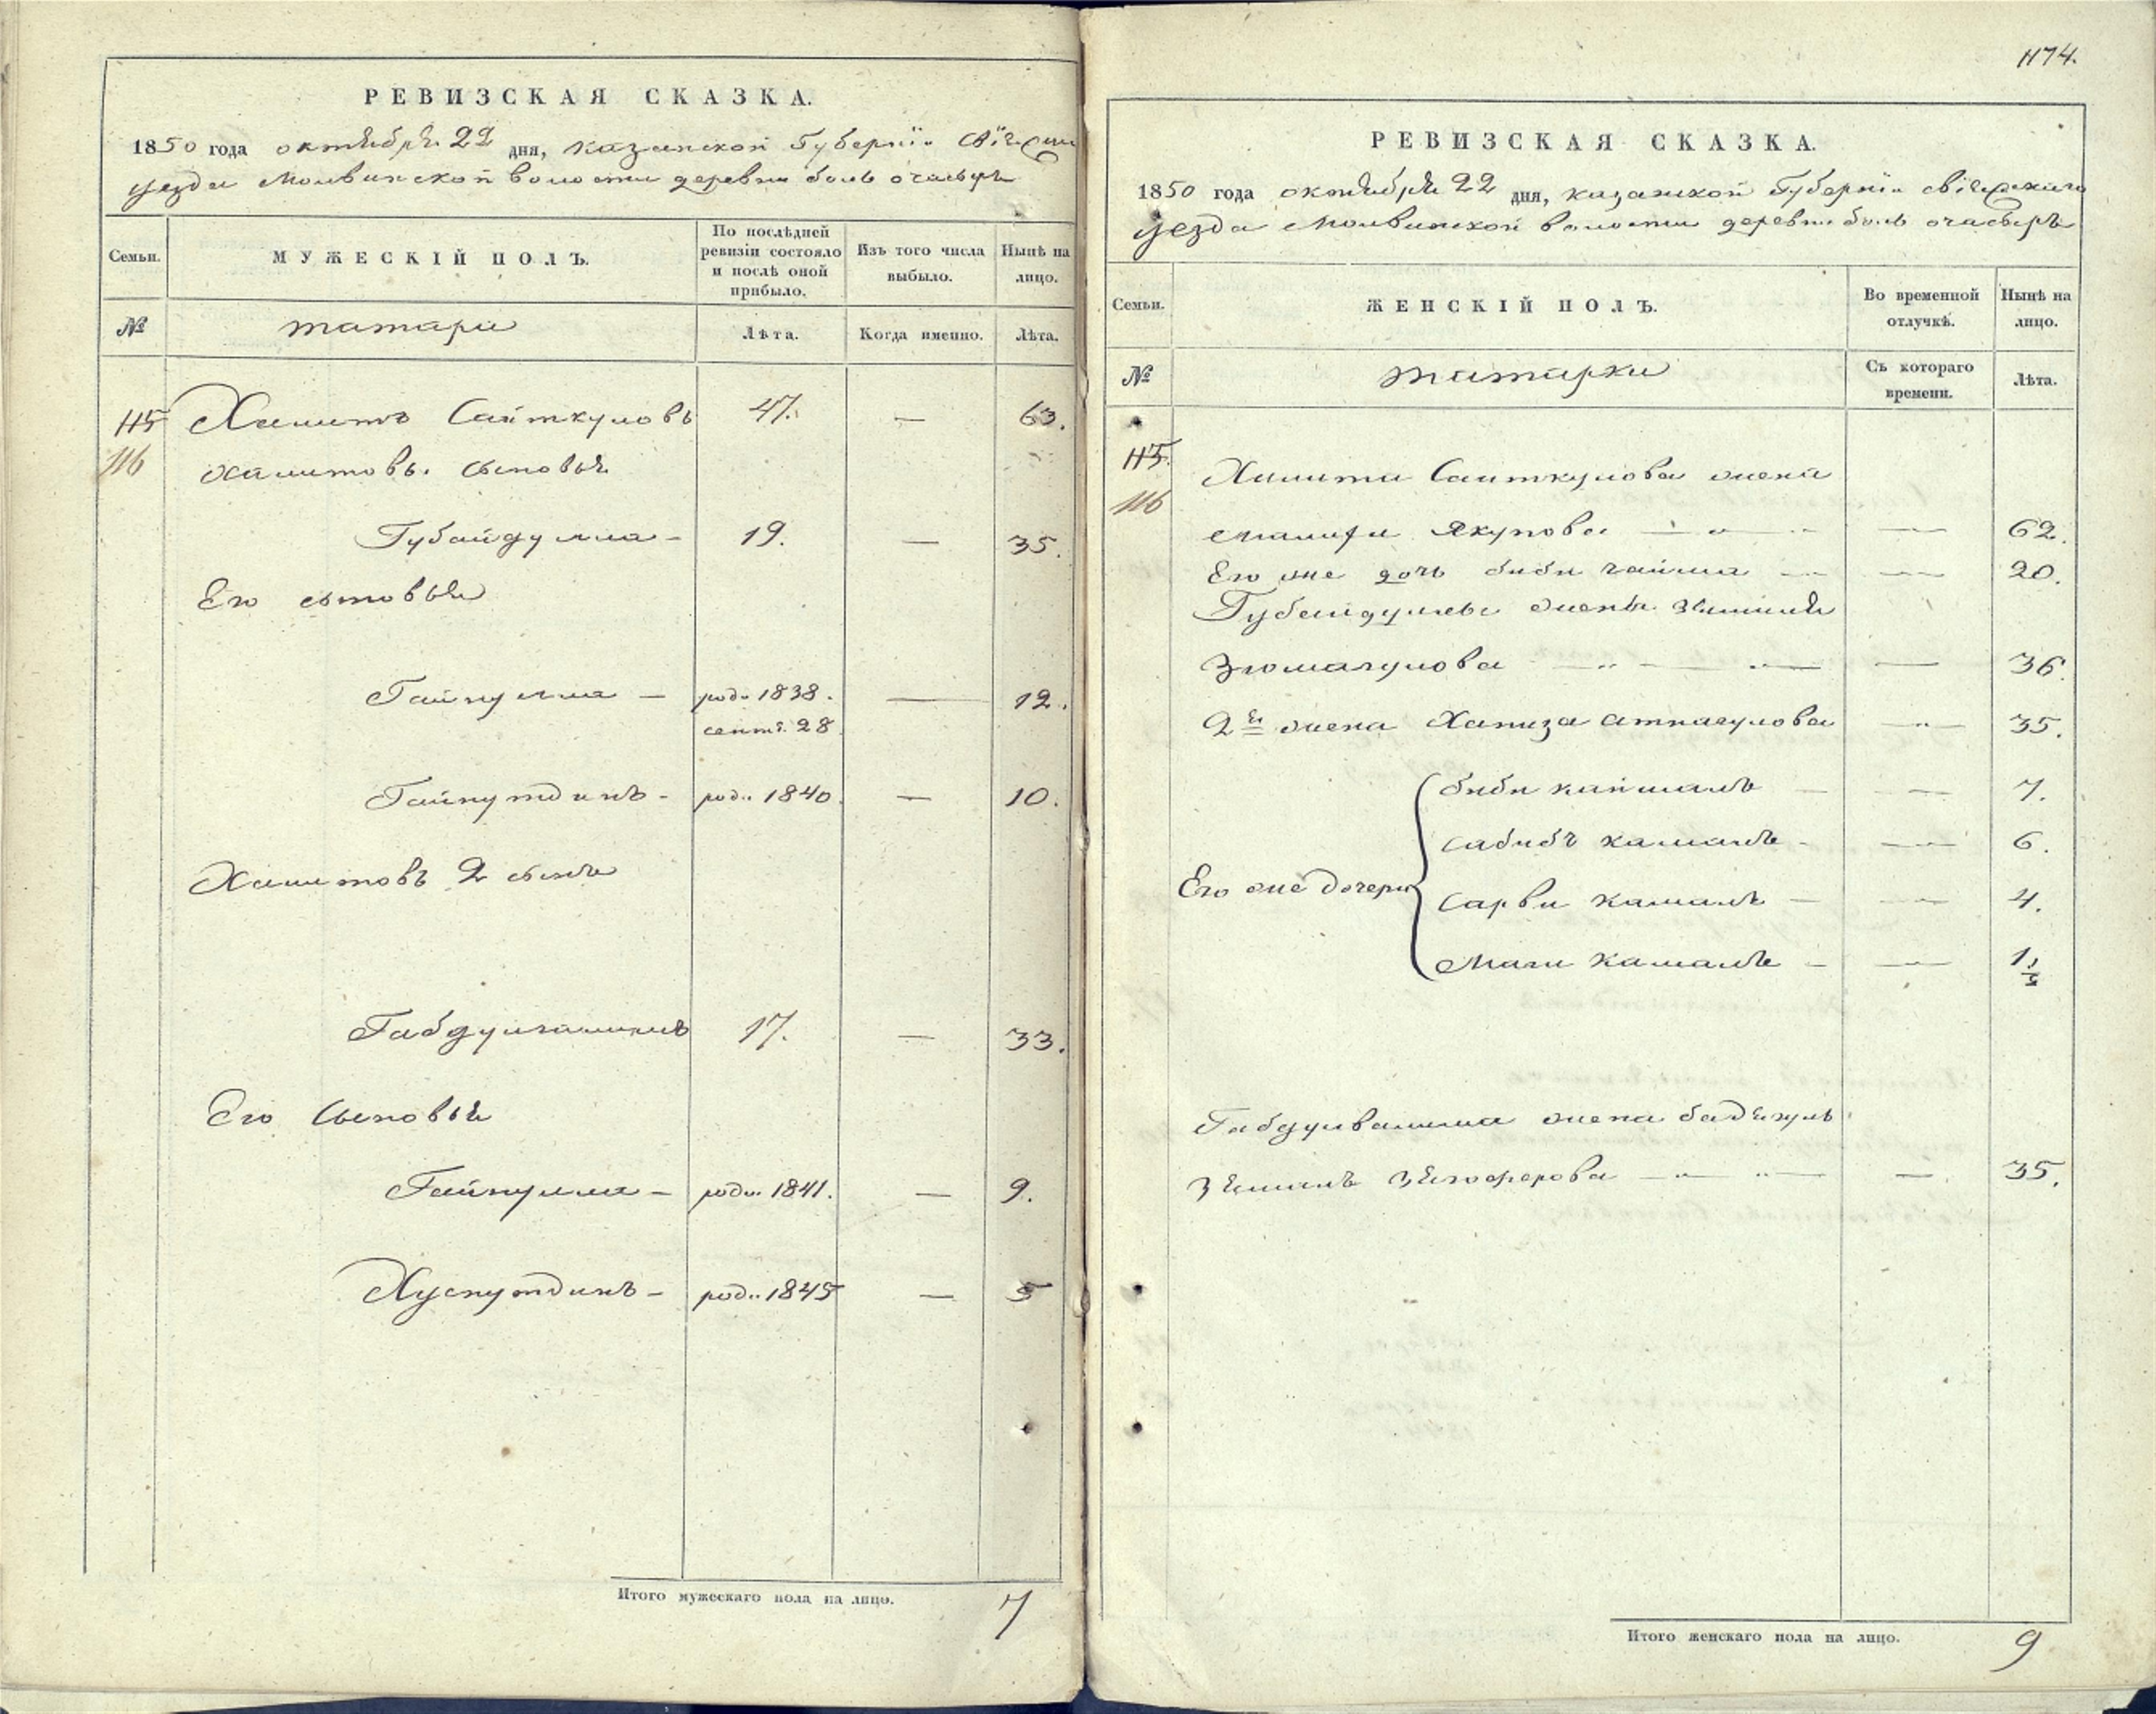 РЕВИЗСКАЯ СКАЗКА.
1850 года октября 22 дня, казанской Губернiи Свiяжск
уезда Молвинской волости деревни боль очасыръ
Семьи.
МУЖЕСКІЙ ПОЛЪ.
По послѣдней ревизіи состояло и послѣ оной прибыло.
Изъ того числа выбыло.
Нынѣ на лицо.
№
татари
Лѣта.
Когда именно.
Лѣта.
115 Хамитъ Саиткуловъ 47. — 63.
116 хамитовы. сыновья
Губайдулла - 19. — 35.
Его сыновья
Гайнулла — род. 1838. — 12.
сент. 28
Гайнутдинъ - род. 1840. — 10.
Хамитовъ 2 сынъ
Габдул 17. — 33.
Его Сыновья
Гайнулла - род. 1841. — 9.
Хуснутдинъ - род. 1845 — 5
Итого мужескаго пола на лицо. 7
1174.
РЕВИЗСКАЯ СКАЗКА.
1850 года октября 22 дня, казанской Губернiи свiяжскаго
уезда Молвинской волости деревни боль очасыръ
Семьи.
ЖЕНСКІЙ ПОЛЪ.
Во временной отлучкѣ.
Нынѣ на лицо.
№
татарки
Съ котораго времени.
Лѣта.
115.
Хамита Саиткулова жена
116
Якупова — — 62.
Его же дочь биби — 20.
Губайдуллы жена
Зюмагулова — — 36.
2я жена Хапиза — 35.
биби камалъ — — 7.
камалъ - — 6.
Его же дочери
Сарви камалъ — — 4.
Маги камалъ — — 1 1/2
жена
— — 35.
Итого женскаго пола на лицо. 9